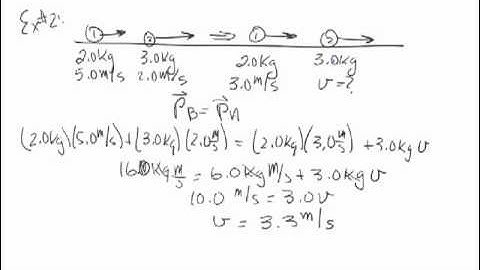 Ex#2:
1 2 ⇒ 1 2
2.0kg 3.0kg 2.0kg 3.0kg
5.0m/s 2.0m/s 3.0m/s v=?
P⃗B = P⃗A
(2.0kg)(5.0m/s)+(3.0kg)(2.0m/s) = (2.0kg)(3.0m/s) + 3.0kg v
16.0kg m/s = 6.0kg m/s + 3.0kg v
10.0 m/s = 3.0v
v = 3.3 m/s